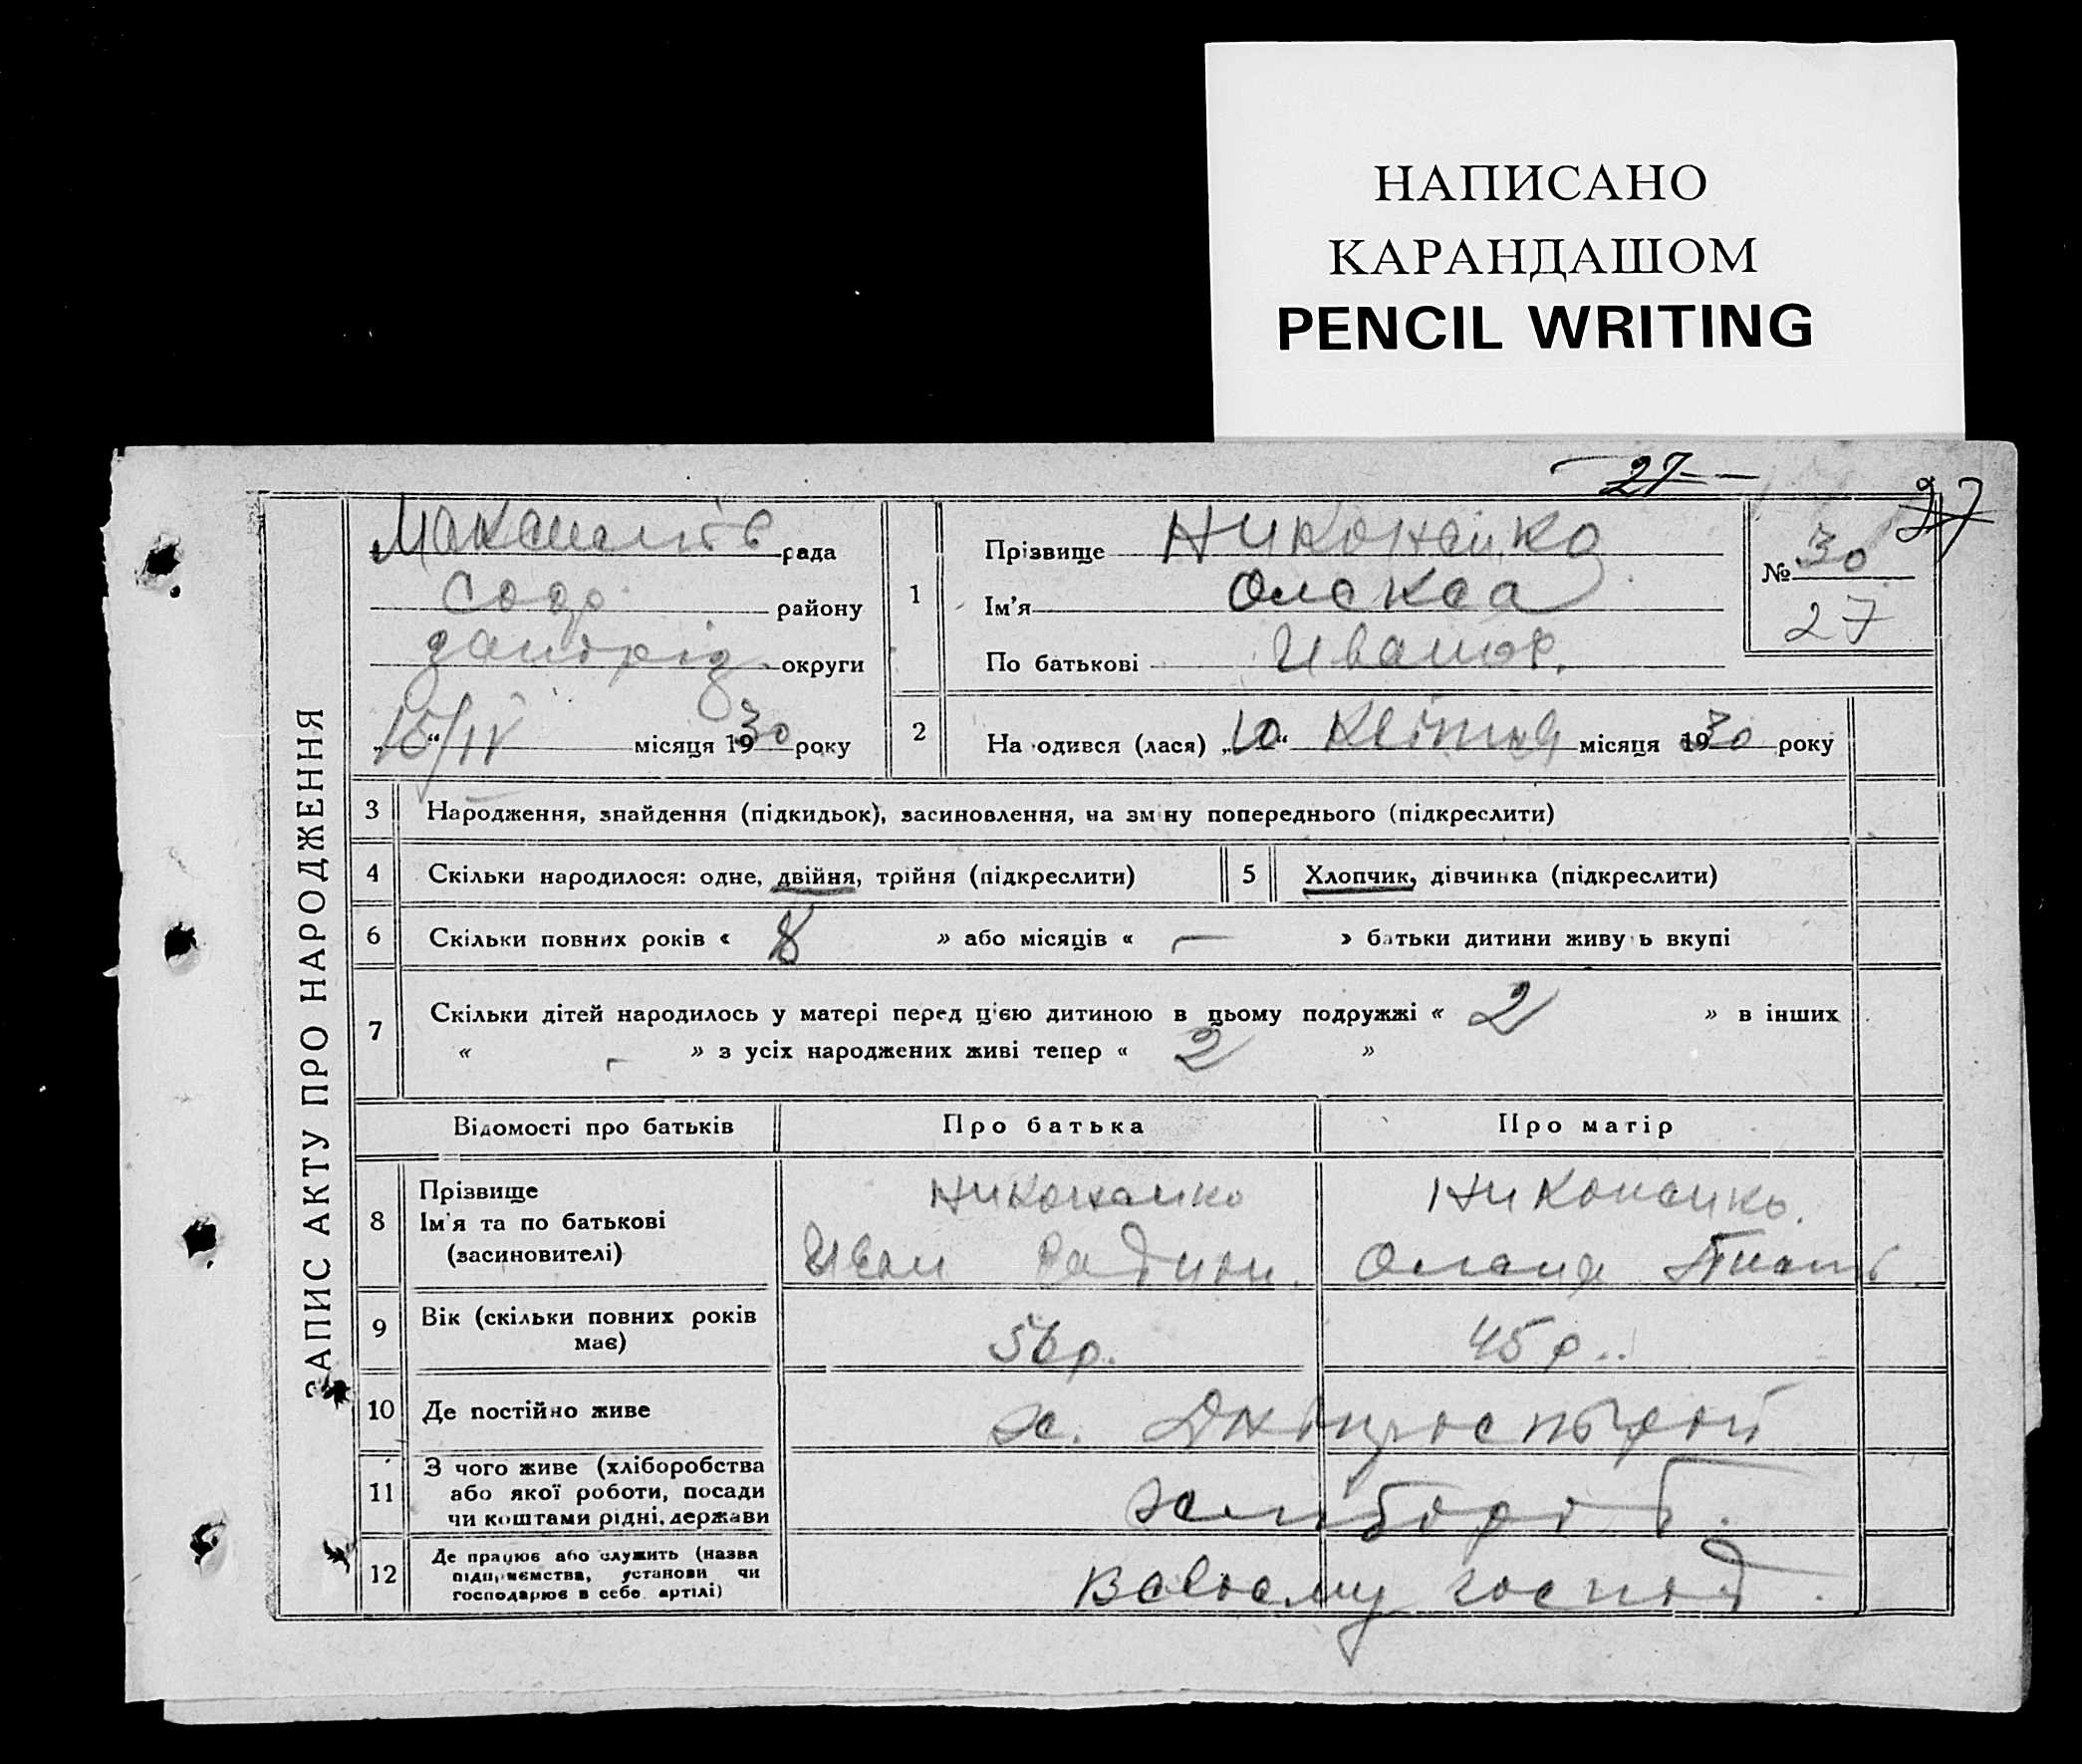 НАПИСАНО
КАРАНДАШОМ
PENCIL WRITING
27
27
ЗАПИС АКТУ ПРО НАРОДЖЕННЯ
рада
району
округи
15/IV місяця 1930 року
1
Прізвище Никонанко
Ім'я Олекса
По батькові Иванов.
№ 30
27
2 На одився (лася) „10“ Квітня місяця 1930 року
3 Народження, знайдення (підкидьок), засиновлення, на зм ну попереднього (підкреслити)
4 Скільки народилося: одне, двійня, трійня (підкреслити)
5 Хлопчик, дівчинка (підкреслити)
6 Скільки повних років « 8 » або місяців « — » батьки дитини живу ь вкупі
7 Скільки дітей народилось у матері перед ц'єю дитиною в цьому подружжі « 2 » в інших
« - » з усіх народжених живі тепер « 2 »
Відомості про батьків Про батька Про матір
8 Прізвище
Ім'я та по батькові
(засиновителі)
Никонанко
Иван
Никонанко.
9 Вік (скільки повних років
має)
56р. 45р..
10 Де постійно живе
х. Дніпрострой
11 З чого живе (хліборобства
або якої роботи, посади
чи коштами рідні, держави
12 Де працює або служить (назва
підприємства, установи чи
господарює в себе артілі)
В своему господ.